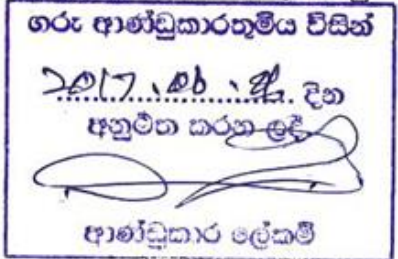 ගරු ආණ්ඩුකාරතුමිය විසින්
2017.06. දින
අනුමත කරන ලදී
ආණ්ඩුකාර ලේකම්